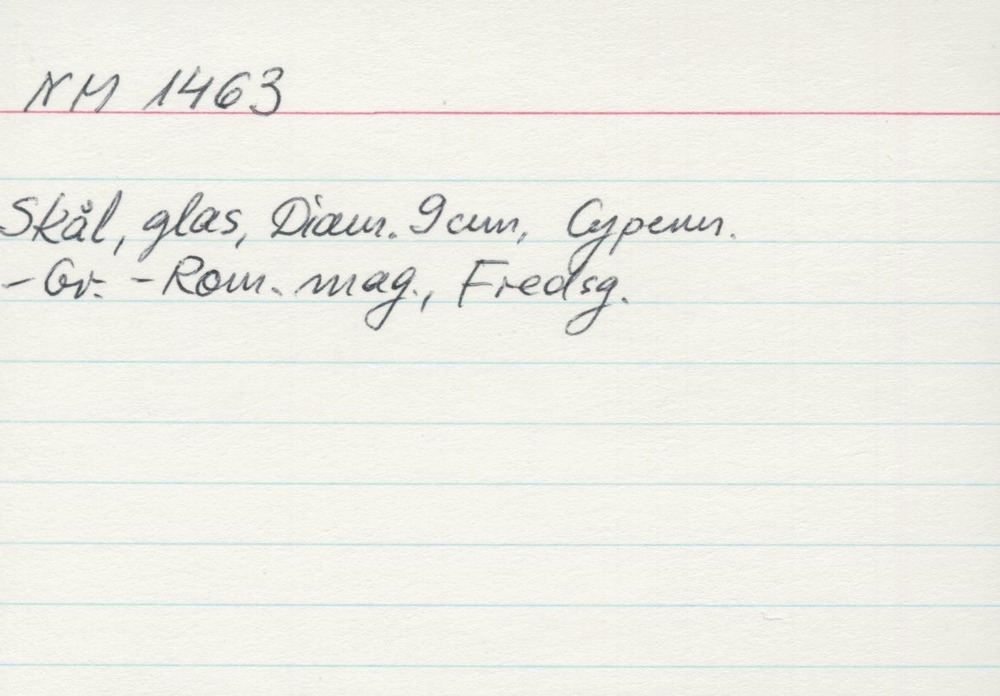 NM 1463
Skål, glas, Diam. 9 cm, Cypern.
- Gr. - Rom. mag., Fredsg.